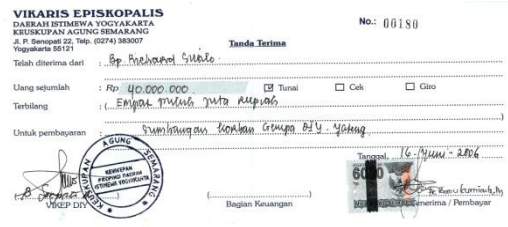 VIKARIS EPISKOPALIS
DAERAH ISTIMEWA YOGYAKARTA
KEUSKUPAN AGUNG SEMARANG
Jl. P. Senopati 22, Telp. (0274) 383007
Yogyakarta 55121
No.: 00180
Tanda Terima
Telah diterima dari : Bp Richard
Uang sejumlah : Rp 40.000.000 Tunai Cek Giro
Terbilang : ( Empat puluh juta rupiah )
Untuk pembayaran : Sumbangan korban Gempa DIY - Jateng
Tanggal, 16 Juni - 2006
KEUSKUPAN AGUNG SEMARANG
KEVIKEPAN
PROPINSI DAERAH
ISTIMEWA YOGYAKARTA
6000
VIKEP DIY
Bagian Keuangan
Penerima / Pembayar